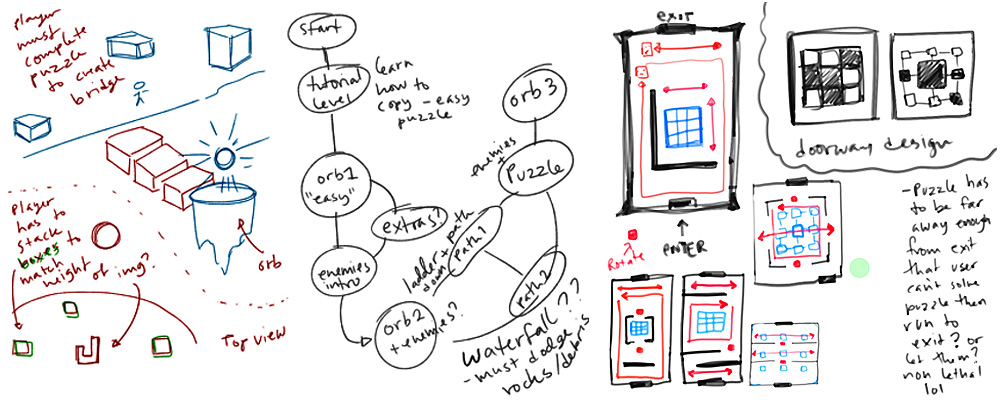 player
must
complete
puzzle
to create
bridge
orb
player
has to
stack
boxes to
match
height of img?
Top view
start
tutorial
level
learn
how to
copy - easy
puzzle
orb1
"easy"
extras?
enemies
intro
orb2
+ enemies?
orb3
enemies
+
Puzzle
ladder + path
down
path1
path2
waterfall??
- must dodge
rocks/debris
exit
ENTER
Rotate
doorway design
- Puzzle has
to be far
away enough
from exit
that user
can't solve
puzzle then
run to
exit? or
let them?
non lethal
lol